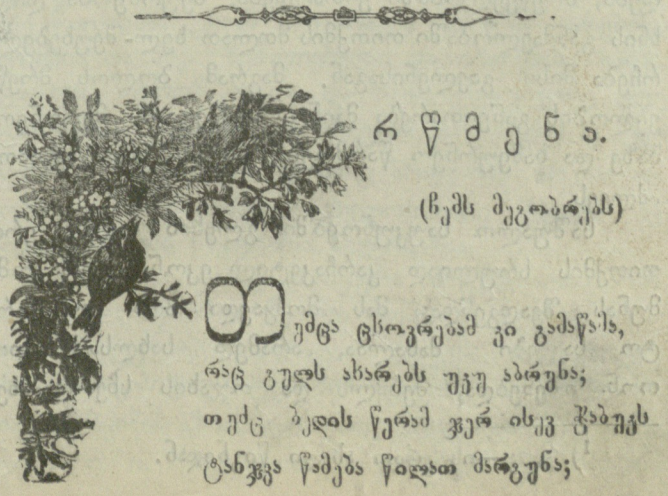 რწმენა.
(ჩემს მეგობრებს)
თუმცა ცხოვრებამ კი გამაწა,
რაც გულს ახარებს უკუ აბრუნა;
თუმც ბედის წერამ ჯერ ისევ ჭაბუკს
ტანჯვა წამება წილათ მარგუნა;